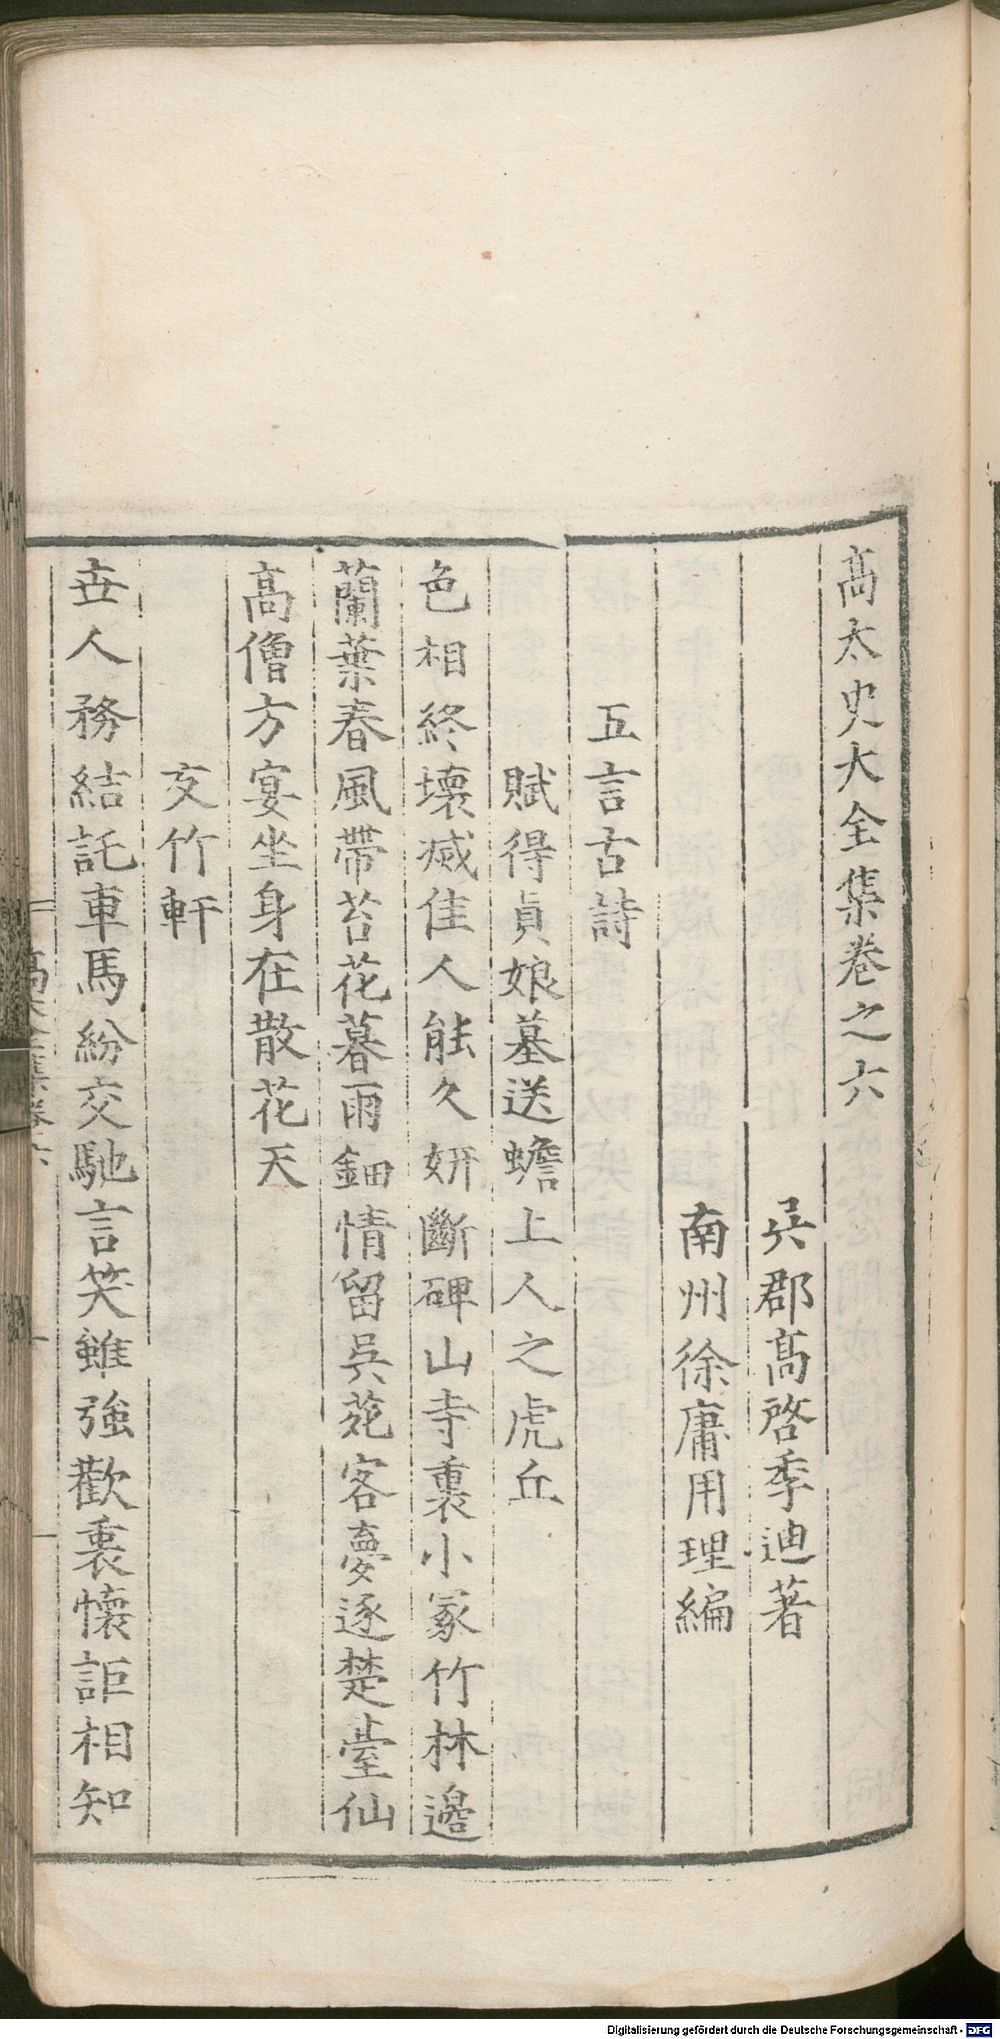 高太史大全集卷之六
吳郡高啓季迪著
南州徐庸用理編
五言古詩
賦得貞娘墓送蟾上人之虎丘
色相終壞滅佳人能久妍斷碑山寺裏小冢竹林邊
蘭葉春風帶苔花暮雨鈿情留吳苑客夢逐楚臺仙
高僧方宴坐身在散花天
友竹軒
世人務結託車馬紛交馳言笑雖強歡衷懷詎相知
高太史集卷六
一
Digitalisierung gefördert durch die Deutsche Forschungsgemeinschaft - DFG